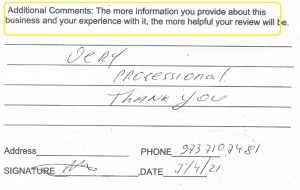 Additional Comments: The more information you provide about this
business and your experience with it, the more helpful your review will be.
Very
Professional
Thank you
Address PHONE 973 710 7481
SIGNATURE DATE 5/4/21